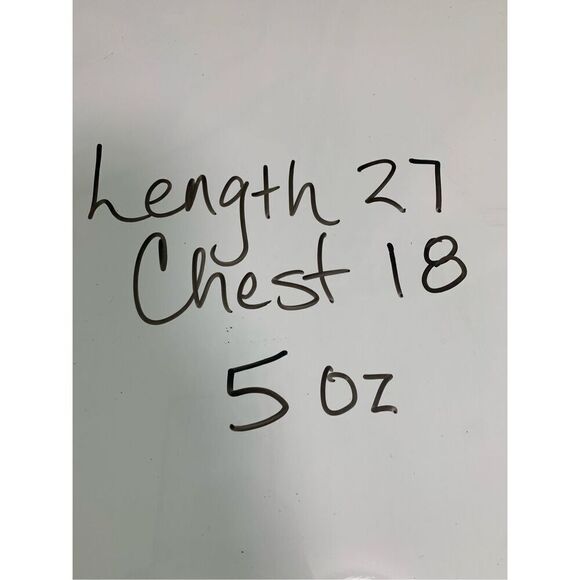 Length 27
Chest 18
5 oz